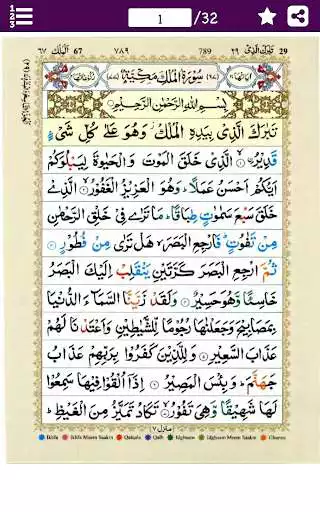 1 /32
٦٧ اَلْمُلْك 67 ٧٨٩ 789 ٢٩ تَبٰرَكَ الَّذِیْ 29
سُوْرَةُ الْمُلْكِ مَكِّيَّةٌ
بِسْمِ اللّٰهِ الرَّحْمٰنِ الرَّحِيْمِ
تَبٰرَكَ الَّذِیْ بِیَدِهِ الْمُلْكُ وَهُوَ عَلٰی كُلِّ شَیْءٍ
قَدِیْرُ ۙ۝۱ الَّذِیْ خَلَقَ الْمَوْتَ وَ الْحَیٰوةَ لِیَبْلُوَكُمْ
اَیُّكُمْ اَحْسَنُ عَمَلًا ؕ وَهُوَ الْعَزِیْزُ الْغَفُوْرُ ۙ۝۲ الَّذِیْ
خَلَقَ سَبْعَ سَمٰوٰتٍ طِبَاقًا ؕ مَا تَرٰی فِیْ خَلْقِ الرَّحْمٰنِ
مِنْ تَفٰوُتٍ ؕ فَارْجِعِ الْبَصَرَ ۙ هَلْ تَرٰی مِنْ فُطُوْرٍ ۝۳
ثُمَّ ارْجِعِ الْبَصَرَ كَرَّتَیْنِ یَنْقَلِبْ اِلَیْكَ الْبَصَرُ
خَاسِئًا وَّهُوَ حَسِیْرٌ ۝۴ وَلَقَدْ زَیَّنَّا السَّمَآءَ الدُّنْیَا
بِمَصَابِیْحَ وَجَعَلْنٰهَا رُجُوْمًا لِّلشَّیٰطِیْنِ وَاَعْتَدْنَا لَهُمْ
عَذَابَ السَّعِیْرِ ۝۵ وَلِلَّذِیْنَ كَفَرُوْا بِرَبِّهِمْ عَذَابُ
جَهَنَّمَ ؕ وَبِئْسَ الْمَصِیْرُ ۝۶ اِذَاۤ اُلْقُوْا فِیْهَا سَمِعُوْا
لَهَا شَهِیْقًا وَّهِیَ تَفُوْرُ ۙ۝۷ تَكَادُ تَمَیَّزُ مِنَ الْغَیْظِ ؕ
منزل ۷
Ikhfa Ikhfa Meem Saakin Qalqala Qalb Idghaam Idghaam Meem Saakin Ghunna